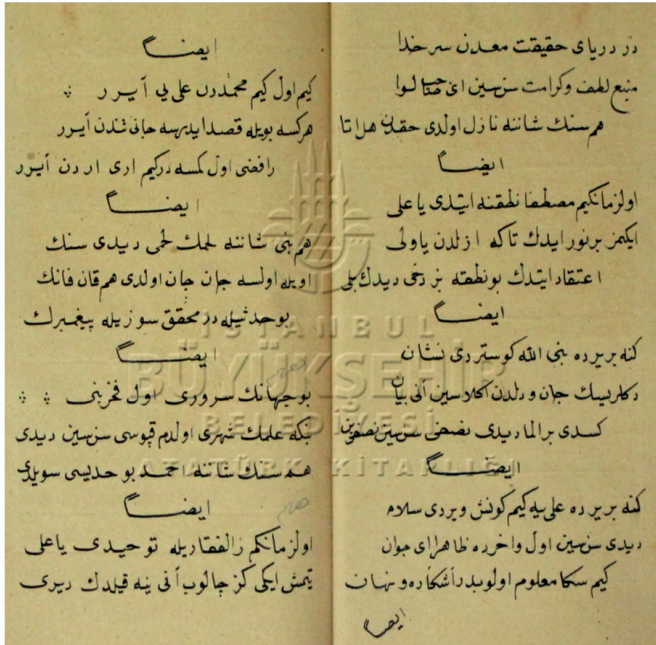 در دریای حقیقت معدن سر خدا
منبع لطف و كرامت سن سین ای
هم سنك شاننه نازل اولدی حقدن هل اتا
ایضاً
اولزمانكیم مصطفا نطقنه ایتدی یا علی
ایكمز بر نور ایدك تا كه ازلدن یا ولی
اعتقاد ایتدك بو نطقه بز دخی دیدك بلی
ایضاً
كنه بریرده نبی الله كوستردی نشان
دكلریسك جان و دلدن اكلاسین آنی بیان
كسدی بر الما دیدی نصفی سن سین
ایضاً
كنه بریرده علی یه كیم كونش ویردی سلام
دیدی سن سین اول و آخرده ظاهر ای جوان
كیم سكا معلوم اولوبدر آشكاره و نهان
ایضاً
ایضاً
كیم اول كیم محمددن علی یی آیرر
هر كسه بویله قصد ایدرسه جانی تندن آیرر
رافضی اول كمسه در كیم اری اردن آیرر
ایضاً
هم نبی شاننه لحمك لحمی دیدی سنك
اویله اولسه جان جان اولدی هم قان قانك
بو حدثیله در محقق سوزیله پیغمبرك
ایضاً
بو جهانك سروری اول فخر نبی
بنكه علمك شهری اولدم قپوسی سن سین دیدی
هم سنك شاننه احمد بو حدیسی سویلدی
ایضاً
اولزمانكم زالفقاریله توحیدی یا علی
یتمش ایكی كز چالوب آنی ینه قیلدك دیری
ISTANBUL
BÜYÜKŞEHİR
BELEDİYESİ
ATATÜRK KİTAPLIĞI